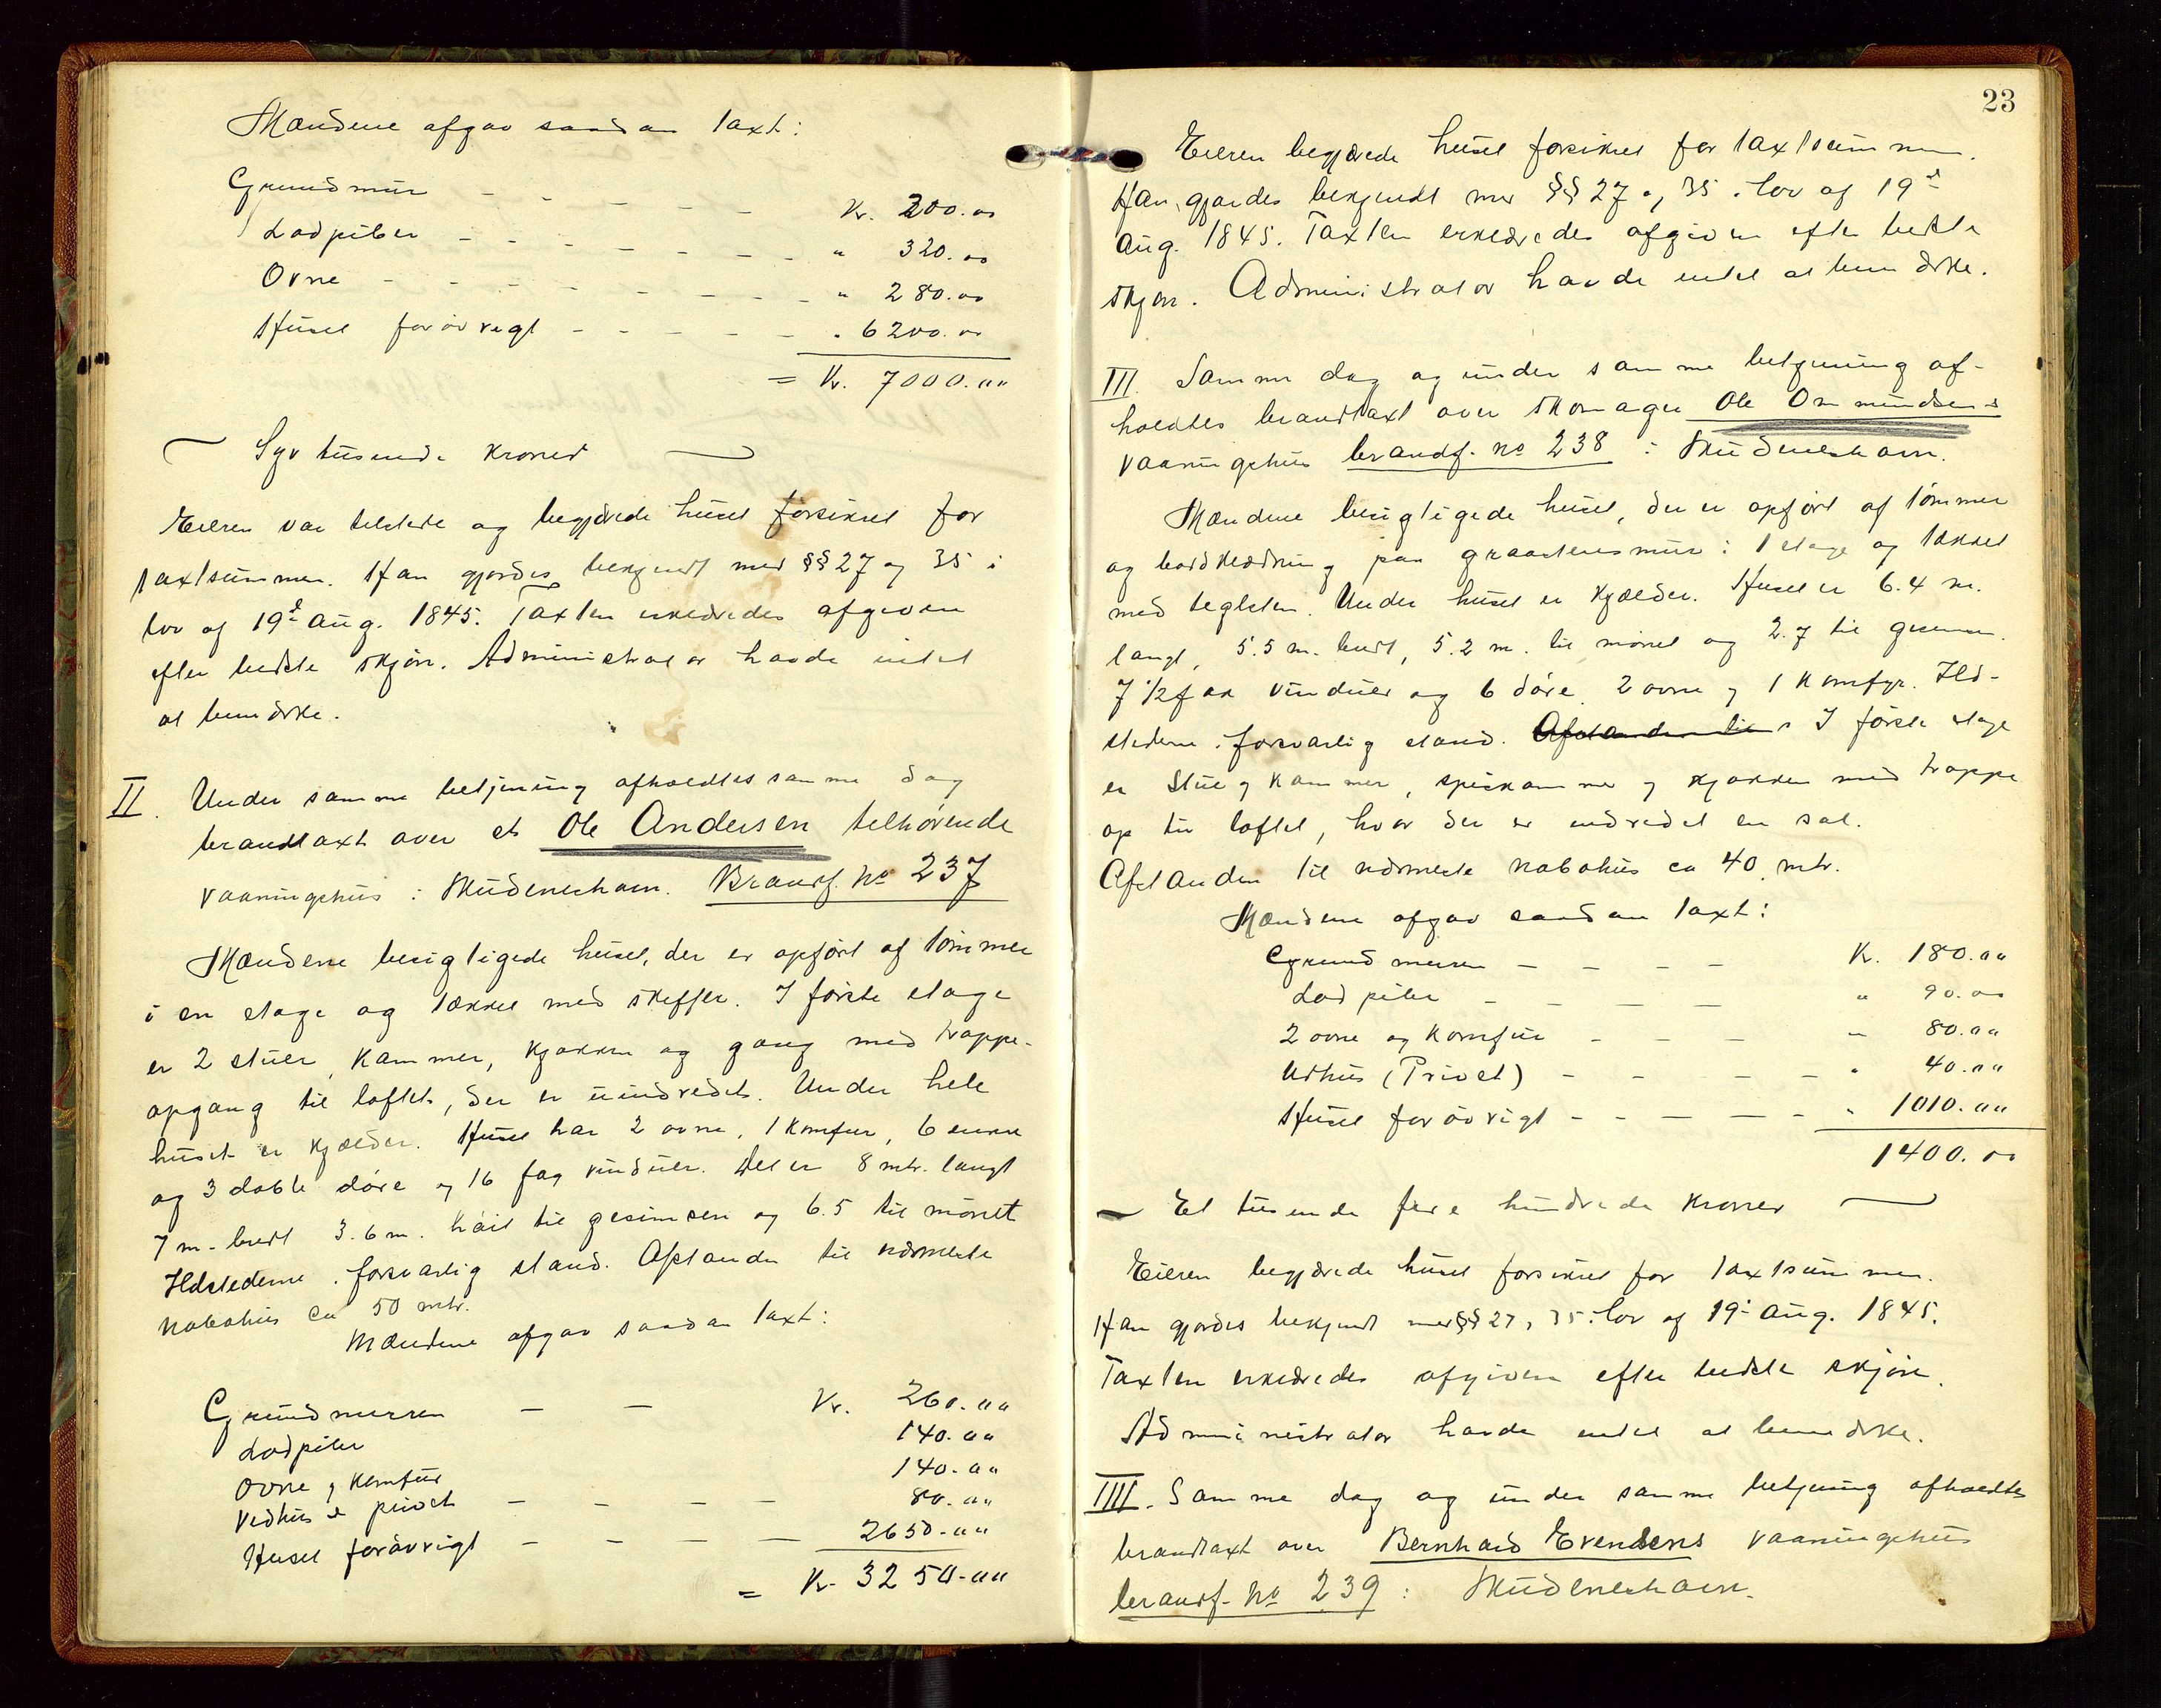 Mændene afgav saadan taxt:
Grundmur - - - - - - Kr. 200.00
Lodpiber - - - - - - - „ 320.00
Ovne - - - - - - - - „ 280.00
Huset forøvrigt - - - - - „ 6200.00
= Kr. 7000.00
Syv tusende kroner
Eieren var tilstede og begjærede huset forsikret for
taxtsummen. Han gjordes bekjendt med §§ 27 og 35 i
lov af 19d Aug. 1845. Taxten erklæredes afgiven
efter bedste skjøn. Administrator havde intet
at bemærke.
II. Under samme betjening afholdtes samme dag
brandtaxt over et Ole Andersen tilhørende
vaaningshus i Skudeneshavn. Brandf. No 237
Mændene besigtigede huset, der er opført af tømmer
i en etage og tækket med skiffer. I første etage
er 2 stuer, kammer, kjøkken og gang med trappe-
opgang til loftet, der er uindredet. Under hele
huset er kjælder. Huset har 2 ovne, 1 komfur, 6 enkle
og 3 doble døre og 16 fag vinduer. Det er 8 mtr. langt
7 m. bredt 3.6 m. høit til gesimsen og 6.5 til mønet
Ildstederne i forsvarlig stand. Afstanden til nærmeste
nabohus ca 50 mtr.
Mændene afgav saadan taxt:
Grundmuren - - Kr. 260.00
Lodpiber 140.00
Ovne og komfur 140.00
Vedhus & privet - - - - 80.00
Huset forøvrigt - - - - 2650.00
= Kr. 3250.00
23
Eieren begjærede huset forsikret for taxtsummen.
Han gjordes bekjendt med §§ 27 og 35 i lov af 19d
Aug. 1845. Taxten erklæredes afgiven efter bedste
skjøn. Administrator havde intet at bemærke.
III. Samme dag og under samme betjening af-
holdtes brandtaxt over skomager Ole Ommundsens
vaaningshus brandf. no 238 i Skudeneshavn.
Mændene besigtigede huset, der er opført af tømmer
og bordklædning paa graastensmur i 1 etage og tækket
med teglsten. Under huset er kjælder. Huset er 6.4 m.
langt, 5.5 m. bredt, 5.2 m. til mønet og 2.7 til gesimsen.
7 1/2 fag vinduer og 6 døre 2 ovne og 1 komfyr. Ild-
stederne i forsvarlig stand. Afstanden til I første etage
er stue og kammer, spiskammer og kjøkken med trappe
op til loftet, hvor der er indredet en sal.
Afstanden til nærmeste nabohus ca 40 mtr.
Mændene afgav saadan taxt:
Grundmuren - - - - Kr. 180.00
Lodpiber - - - - „ 90.00
2 ovne og komfur - - - „ 80.00
Udhus (Privet) - - - - „ 40.00
Huset forøvrigt - - - - - „ 1010.00
1400.00
Et tusende fire hundrede kroner
Eieren begjærede huset forsikret for taxtsummen.
Han gjordes bekjendt med §§ 27, 35 i lov af 19d Aug. 1845.
Taxten erklæredes afgiven efter bedste skjøn.
Administrator havde intet at bemærke.
IIII. Samme dag og under samme betjening afholdtes
brandtaxt over Bernhard Evensens vaaningshus
brandf. No 239 i Skudeneshavn.